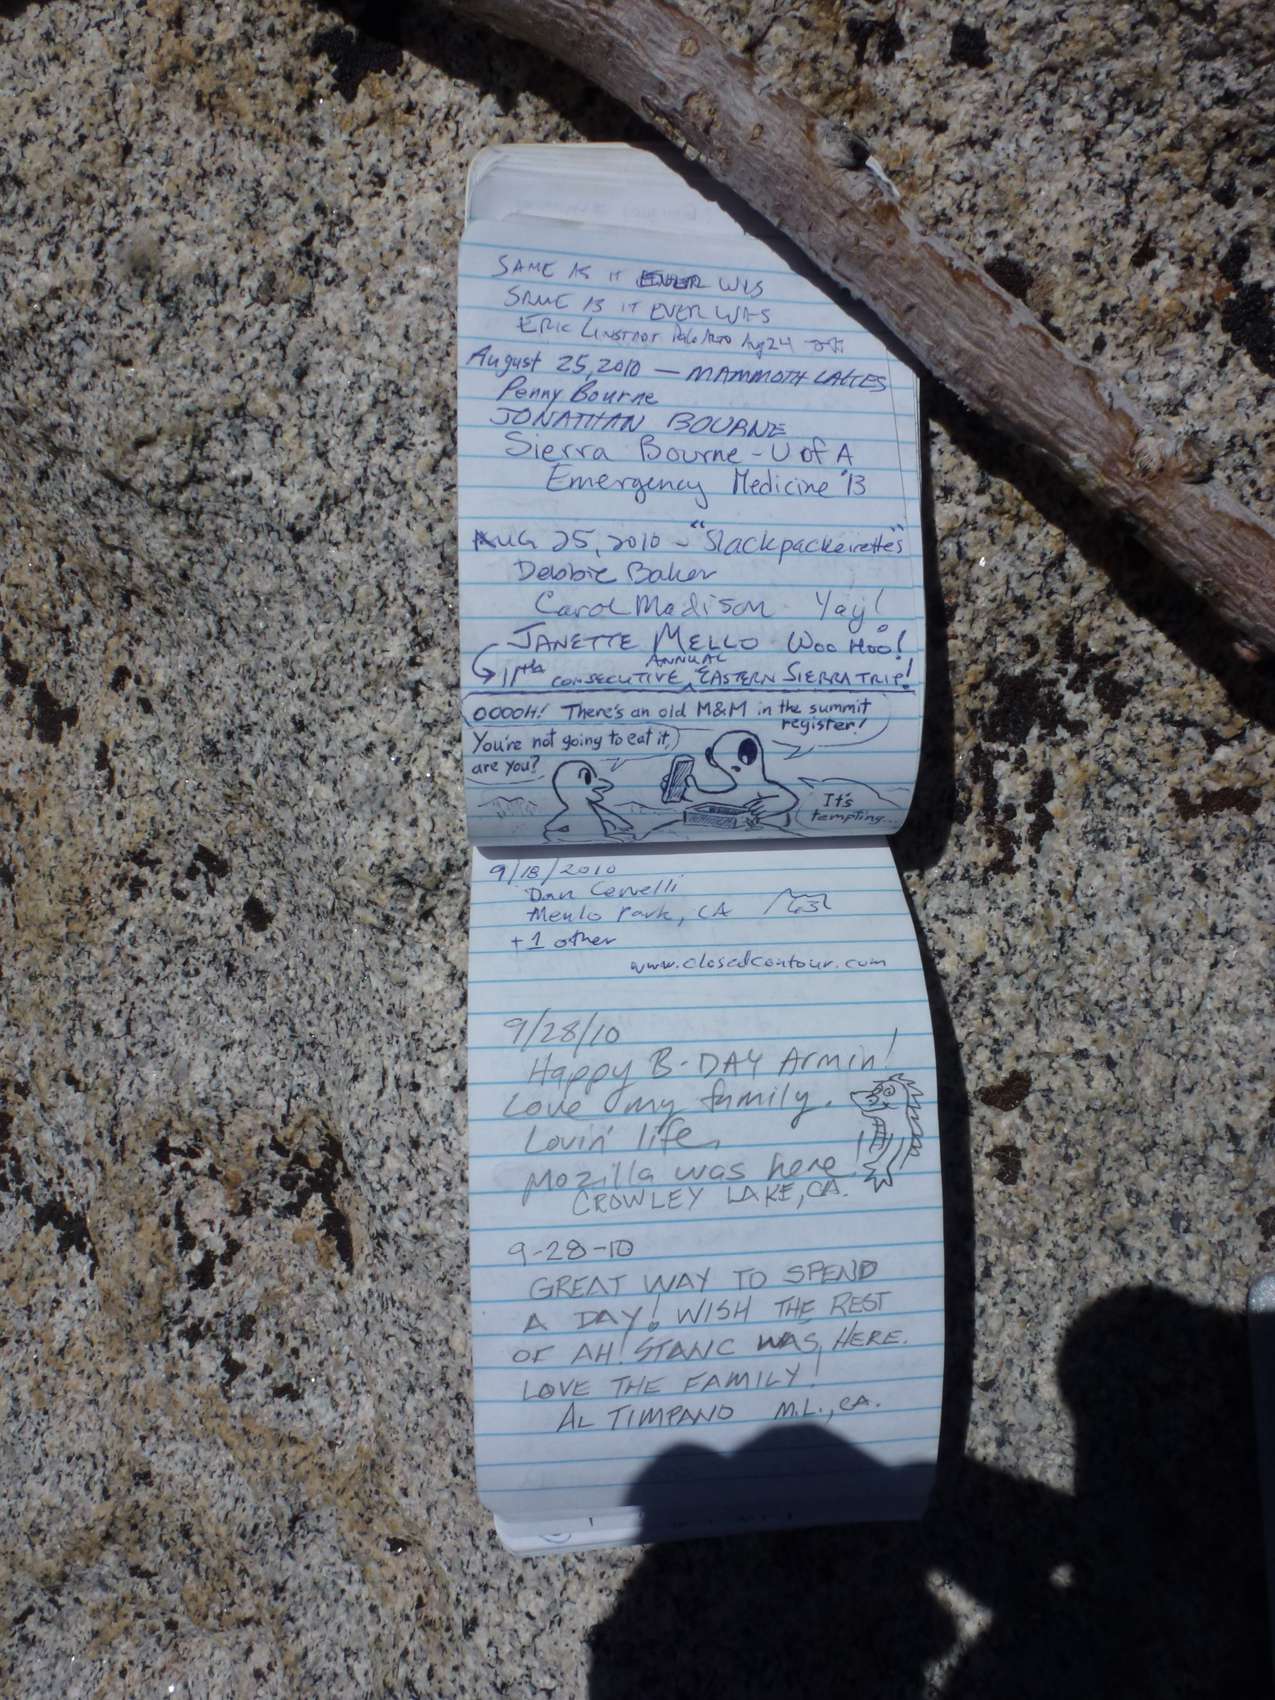 SAME AS IT EVER WAS
SAME AS IT EVER WAS
ERIC Palo Alto Aug 24
August 25, 2010 — MAMMOTH LAKES
Penny Bourne
JONATHAN BOURNE
Sierra Bourne - U of A
Emergency Medicine '13
AUG 25, 2010 ~ "Slackpackerettes"
Debbie Baker
Carol Madison Yay!
JANETTE MELLO WOO HOO!
11th CONSECUTIVE ANNUAL EASTERN SIERRA TRIP!
OOOOH! There's an old M&M in the summit
register!
You're not going to eat it,
are you?
It's
tempting...
9/18/2010
Dan Cervelli
Menlo Park, CA
+ 1 other
www.closedcontour.com
9/28/10
Happy B-DAY Armin!
Love my family.
Lovin' life,
Mozilla was here
CROWLEY LAKE, CA.
9-28-10
GREAT WAY TO SPEND
A DAY! WISH THE REST
OF AH! STANC WAS HERE.
LOVE THE FAMILY!
AL TIMPANO M.L., CA.